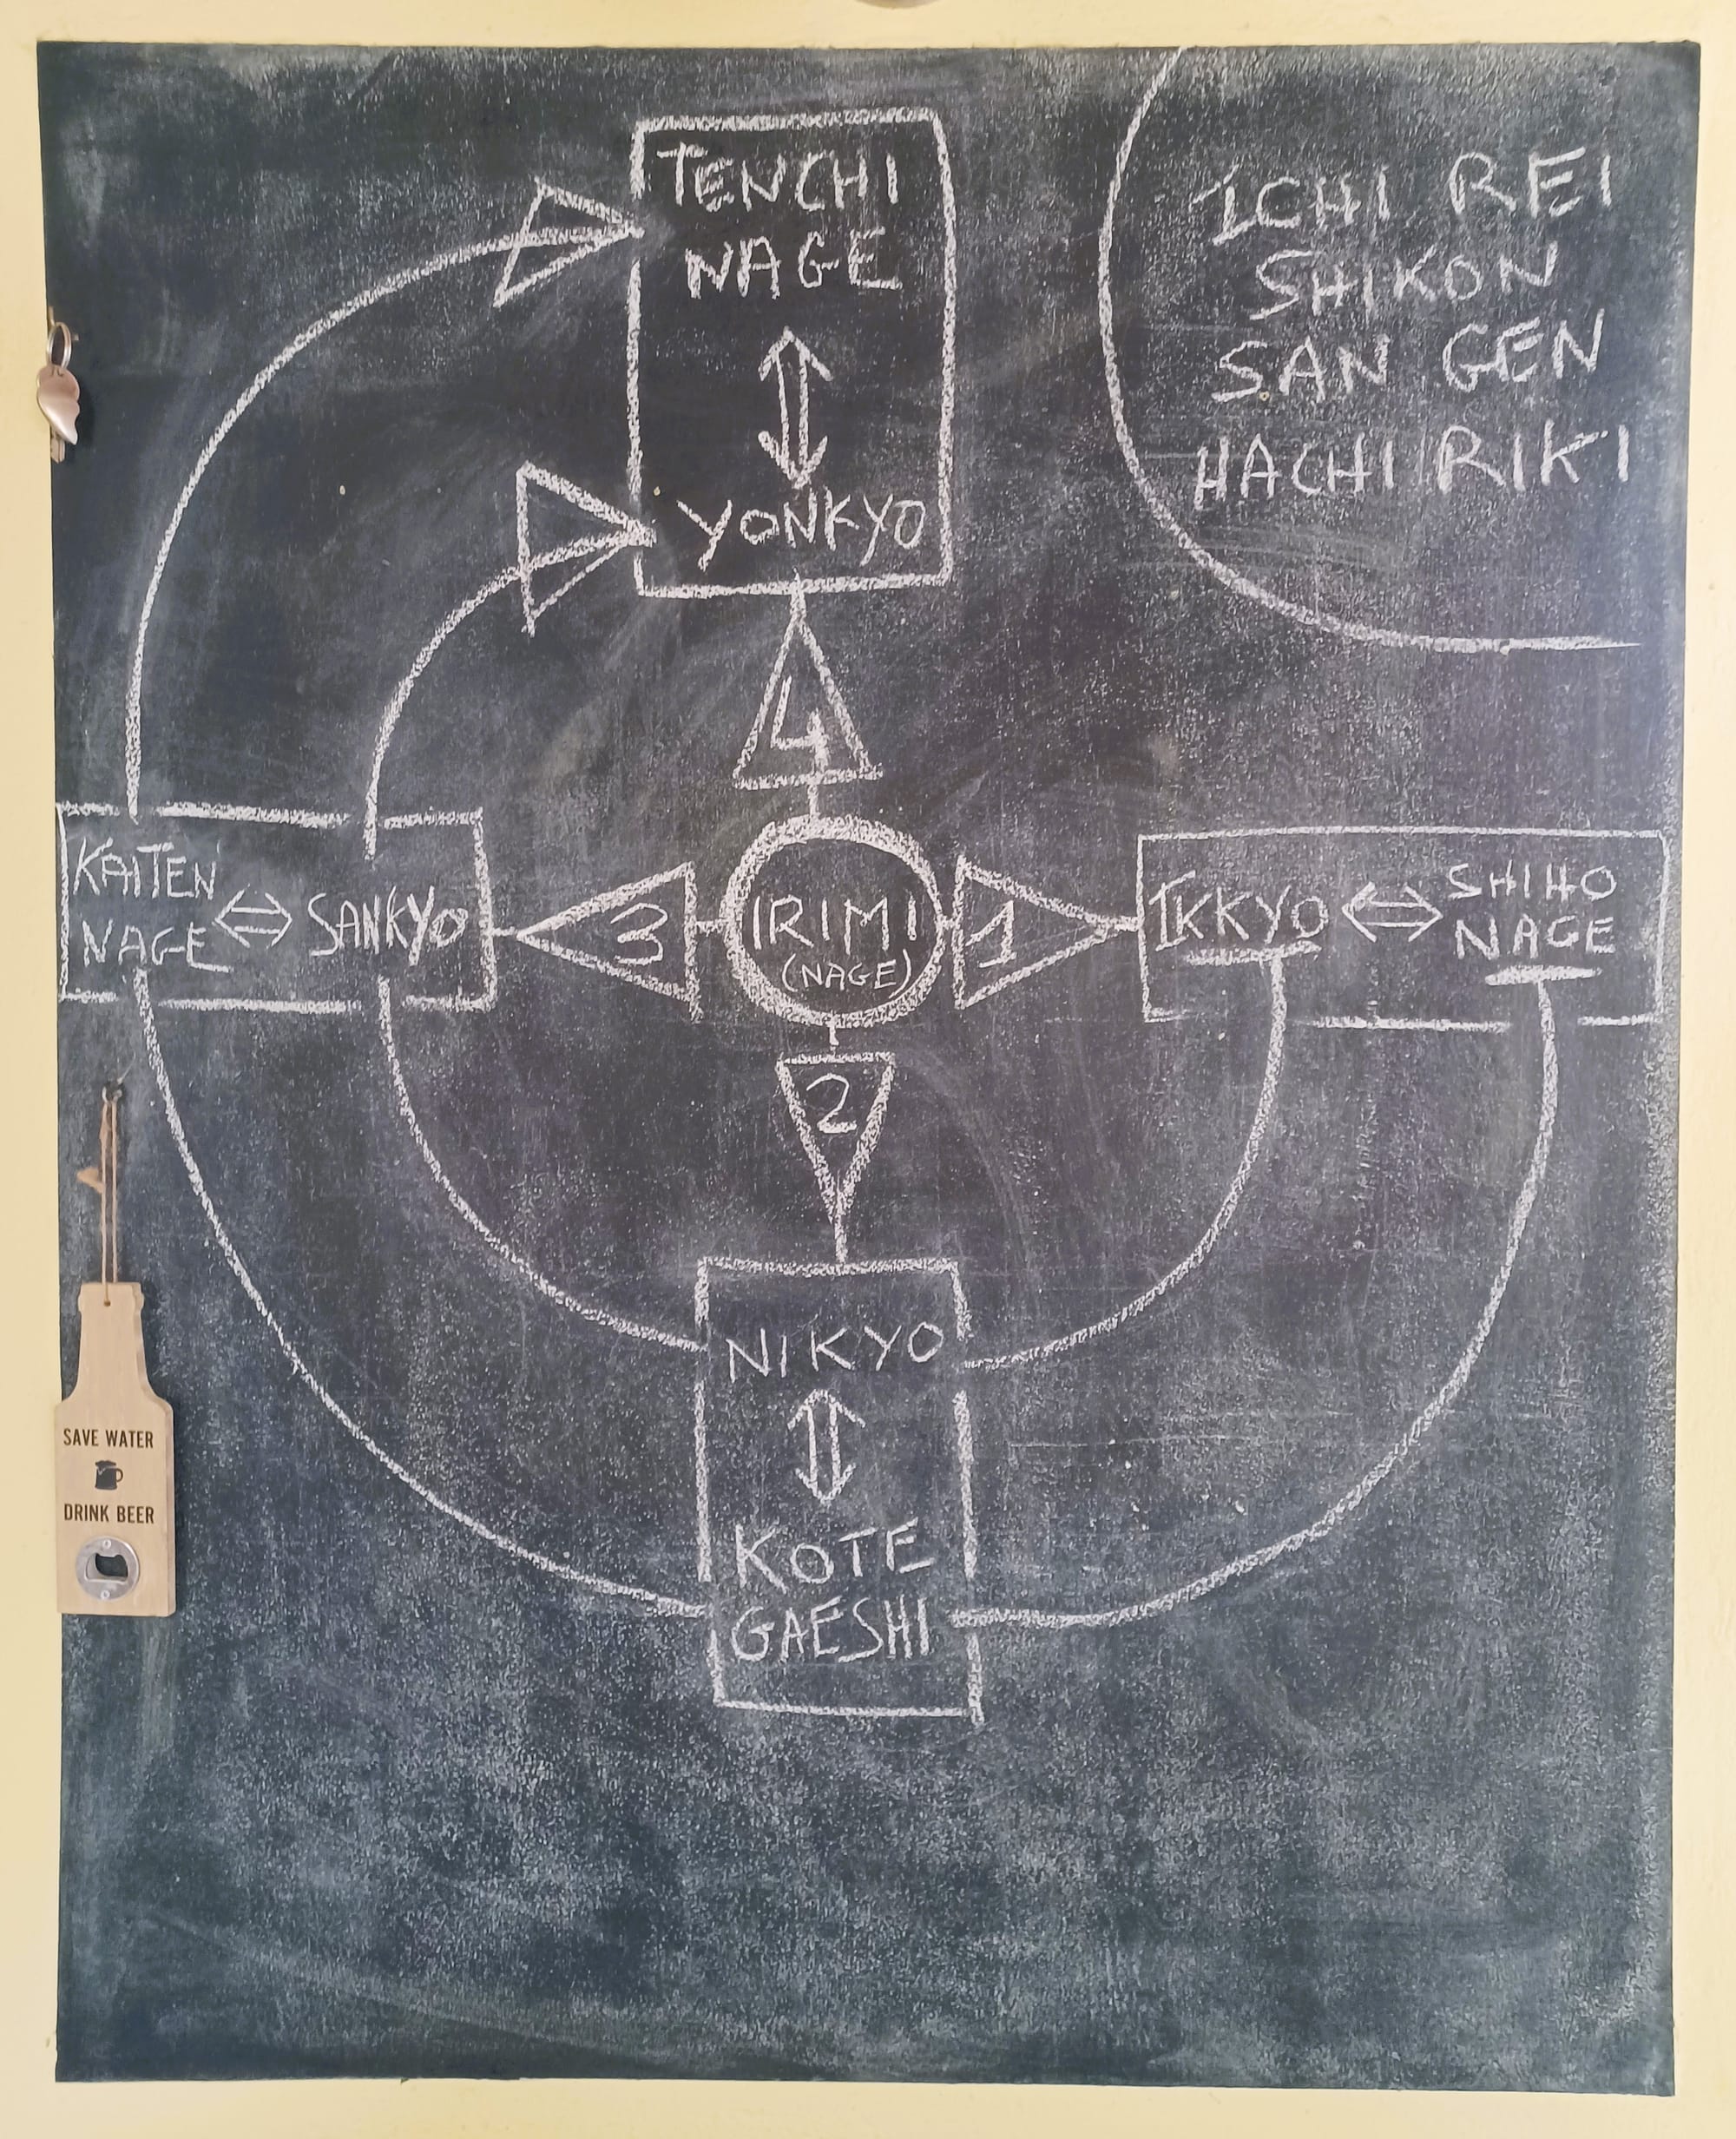 TENCHI
NAGE
YONKYO
ICHI REI
SHIKON
SAN GEN
HACHI RIKI
4
KAITEN
NAGE
SANKYO
3
IRIMI
(NAGE)
1
IKKYO
SHIHO
NAGE
2
NIKYO
KOTE
GAESHI
SAVE WATER
DRINK BEER